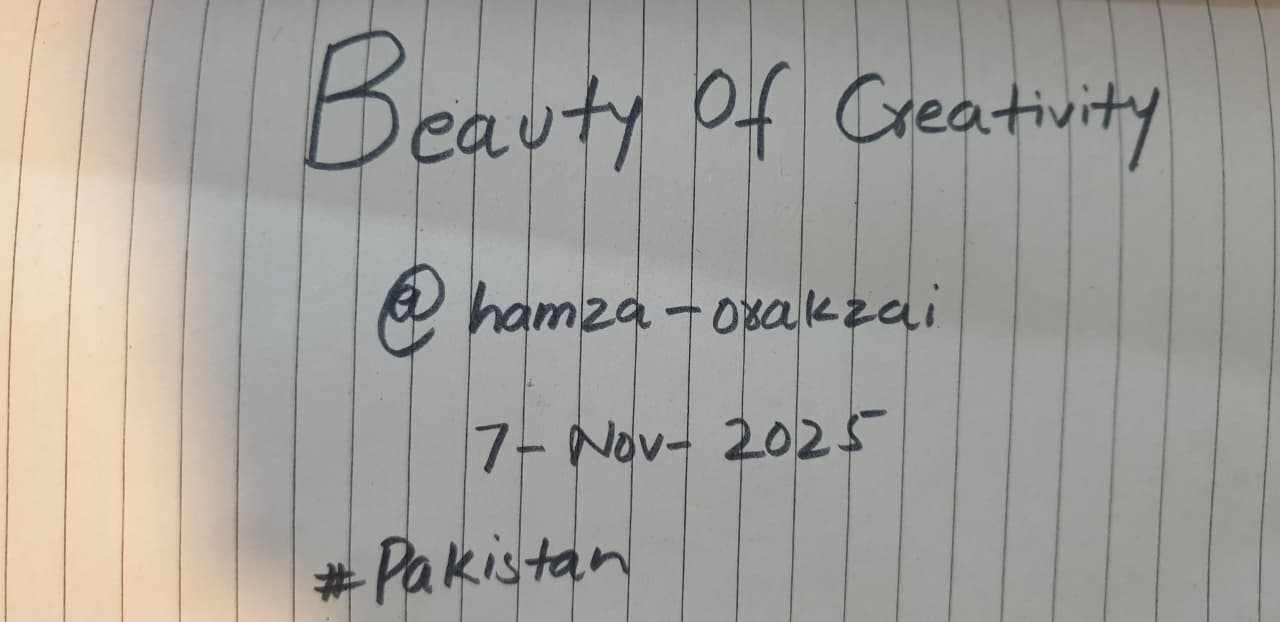 Beauty Of Creativity
@hamza-orakzai
7-Nov-2025
#Pakistan